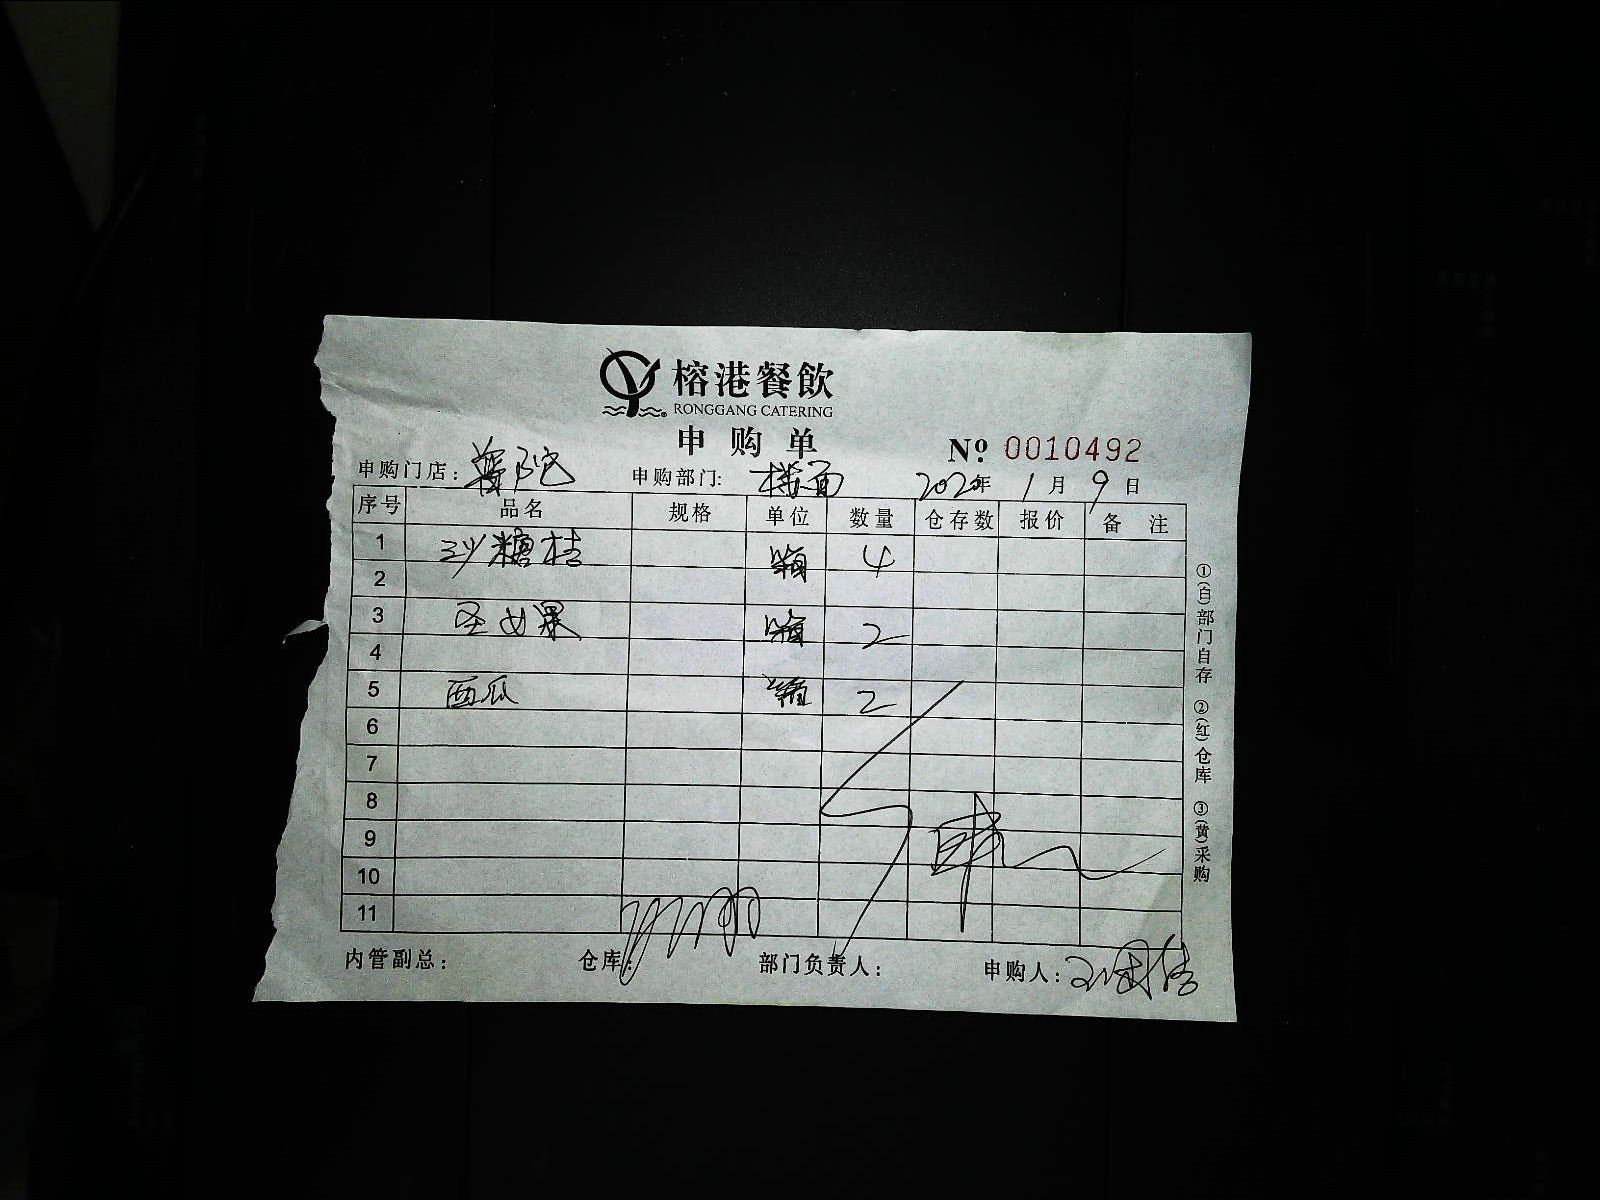 榕港餐飲
RONGGANG CATERING
申购单
№ 0010492
申购门店: 申购部门: 楼面 2020年 1月 9日
序号 品名 规格 单位 数量 仓存数 报价 备注
1 沙糖桔 箱 4
2
3 圣女果 箱 2
4
5 西瓜 箱 2
6
7
8
9
10
11
内管副总: 仓库: 部门负责人: 申购人:
①(白)部门自存 ②(红)仓库 ③(黄)采购